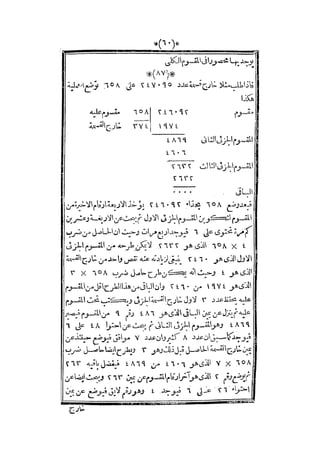 *(٦٠)*
يوجد بها محصورا فى المقسوم الكلى
*(٨٧)*
فاذا طلب مثلا خارج قسمة عدد ٢٤٦٠٩٢ على ٦٥٨ توضع العملية
هكذا
مقسوم ٢٤٦٠٩٢ ٦٥٨ مقسوم عليه
١٩٧٤ ٣٧٤ خارج القسمة
المقسوم الجزئى الثانى ٤٨٦٩
٤٦٠٦
المقسوم الجزئى الثالث ٢٦٣٢
٢٦٣٢
الباقى ٠٠٠٠
فبعد وضع ٦٥٨ بجذاء ٢٤٦٠٩٢ يؤخذ الاربعة ارقام الاخيرة من
المقسوم لتكوين المقسوم الجزئى الاول ثم يبحث عن الاربعة وعشرين
كم مرة تحتوى على ٦ فيوجد اربع مرات وحيث ان الحاصل من ضرب
٤ × ٦٥٨ الذى هو ٢٦٣٢ لا يمكن طرحه من المقسوم الجزئى
الاول الذى هو ٢٤٦٠ ينبغى لزيادته عنه نقص واحد من خارج القسمة
الذى هو ٤ وحيث انه يمكن طرح حاصل ضرب ٦٥٨ × ٣
الذى هو ١٩٧٤ من ٢٤٦٠ وان الباقى من هذا الطرح اقل من المقسوم
عليه يحفظ عدد ٣ لاول خارج القسمة الجزئى ويكتب تحت المقسوم
عليه ثم ينزل عن يمين الباقى الذى هو ٤٨٦ رقم ٩ من المقسوم فيصير
٤٨٦٩ وهو المقسوم الجزئى الثانى ثم يبحث عن احتواء ٤٨ على ٦
فيوجد كما سبق ان عدد ٨ كثير وان عدد ٧ موافق فيوضع حينئذ عن
يمين خارج القسمة الحاصل قبل ذلك وهو ٣ ويطرح ايضا حاصل ضرب
٦٥٨ × ٧ الذى هو ٤٦٠٦ من ٤٨٦٩ فيفضل باقيه ٢٦٣
ثم يوضع رقم ٢ الذى هو آخر ارقام المقسوم عن يمين ٢٦٣ ويبحث ايضا عن
احتواء ٢٦ على ٦ فيوجد ٤ وهو رقم لايق فيوضع عن يمين
خارج